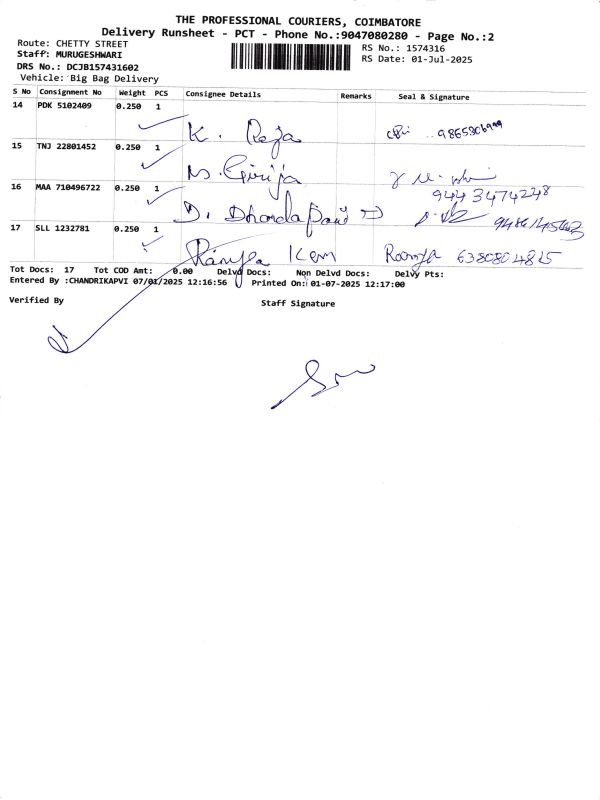 THE PROFESSIONAL COURIERS, COIMBATORE
Delivery Runsheet - PCT - Phone No.:9047080280 - Page No.:2
Route: CHETTY STREET
Staff: MURUGESHWARI
DRS No.: DCJB157431602
Vehicle: Big Bag Delivery
RS No.: 1574316
RS Date: 01-Jul-2025
S No Consignment No Weight PCS Consignee Details Remarks Seal & Signature
14 PDK 5102409 0.250 1 K. Raja
15 TNJ 22801452 0.250 1 N. Girija 944 3474248
16 MAA 710496722 0.250 1 D. Dhandapani
17 SLL 1232781 0.250 1 Ramya Ramya 6380804815
Tot Docs: 17 Tot COD Amt: 0.00 Delvd Docs: Non Delvd Docs: Delvy Pts:
Entered By :CHANDRIKAPVI 07/01/2025 12:16:56 Printed On: 01-07-2025 12:17:00
Verified By Staff Signature